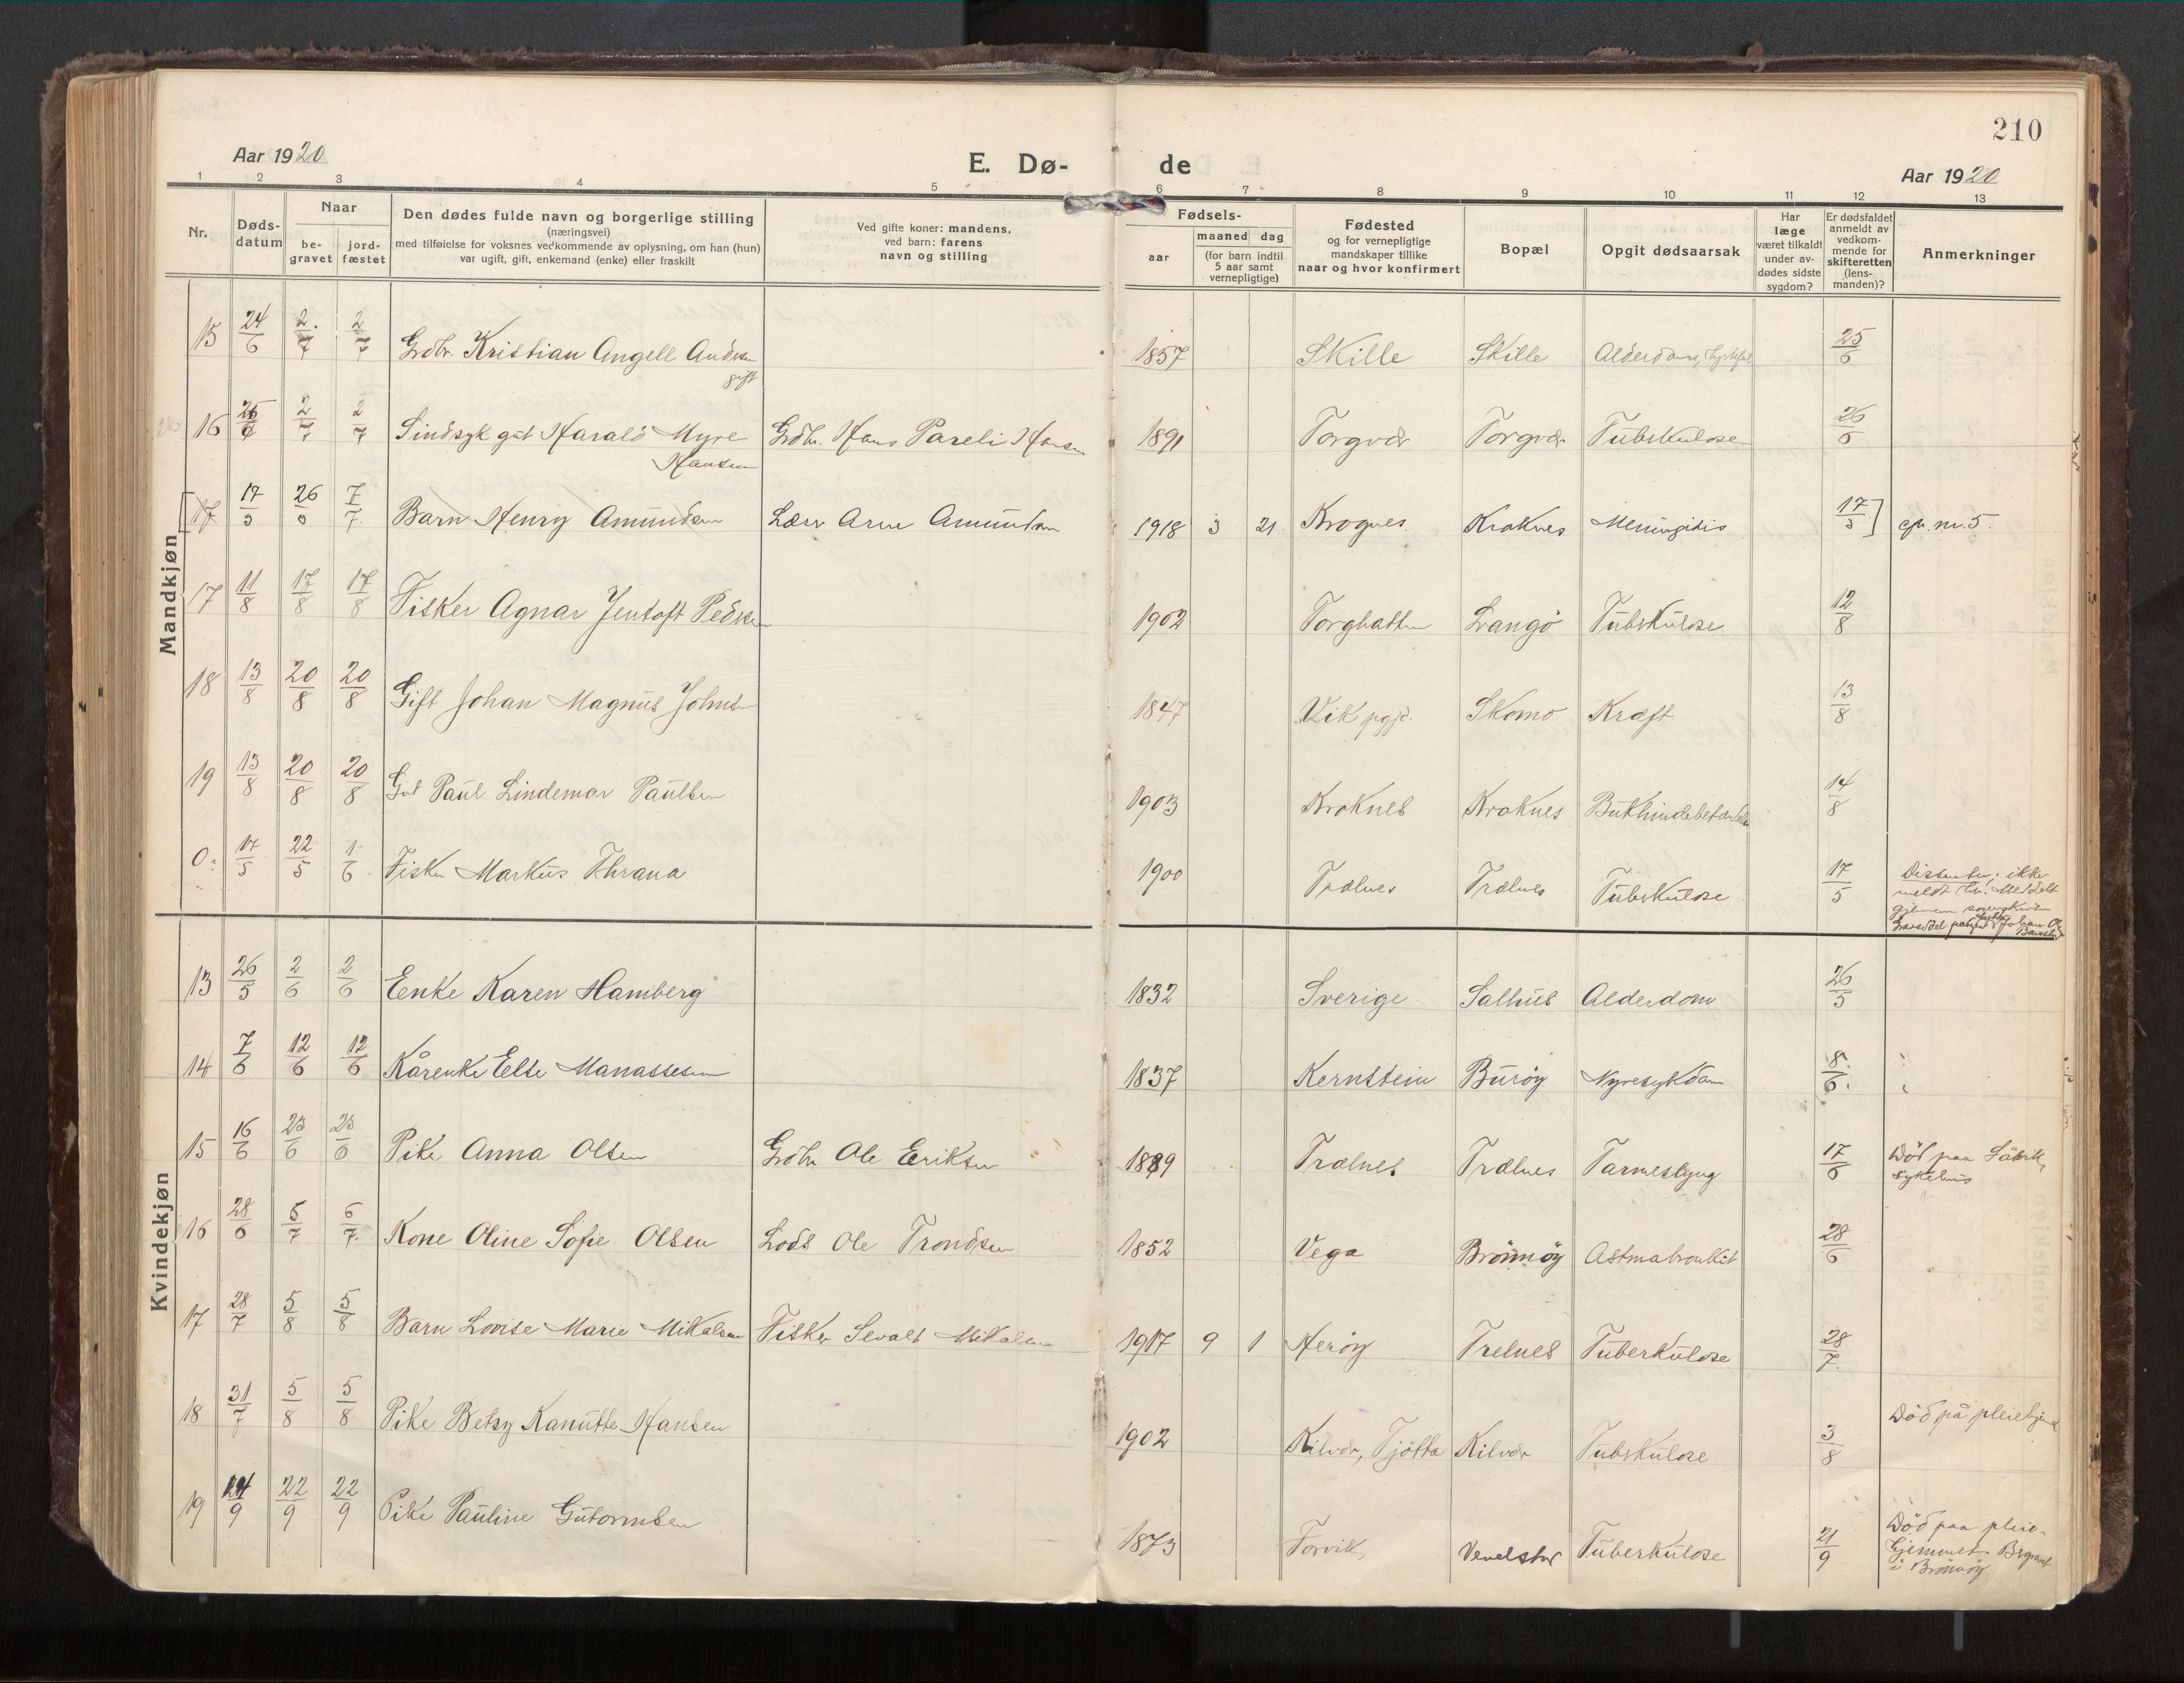 210
Aar 1920
E. Dø-
de
Aar 1920
1 2 3 4 5 6 7 8 9 10 11 12 13
Nr.
Døds-
datum
Naar
be-
gravet
jord-
fæstet
Den dødes fulde navn og borgerlige stilling
(næringsvei)
med tilføielse for voksnes vedkommende av oplysning, om han (hun)
var ugift, gift, enkemand (enke) eller fraskilt
Ved gifte koner: mandens,
ved barn: farens
navn og stilling
Fødsels-
aar
maaned dag
(for barn indtil
5 aar samt
vernepligtige)
Fødested
og for vernepligtige
mandskaper tillike
naar og hvor konfirmert
Bopæl
Opgit dødsaarsak
Har
læge
været tilkaldt
under av-
dødes sidste
sygdom?
Er dødsfaldet
anmeldt av
vedkom-
mende for
skifteretten
(lens-
manden)?
Anmerkninger
Mandkjøn
15 24/6 2/7 2/7 Grdbr. Kristian Angell Andsen 1857 Skille Skille Alderdoms, 25/6
gift
16 26/6 2/7 2/7 Sindsyk gut Harald Myre Grdbr. Hans Pareli Hansen 1891 Torgvær Torgvær Tubskulose 26/6
Hansen
17 17/5 26/5 7/7 Barn Henry Amundsen Lærer Arne Amundsen 1918 3 21 Krognes Kraknes Meningitis 17/5 cfr. nr. 5.
17 11/8 17/8 17/8 Fisker Agnar Jentoft Pedsen 1902 Torghatten Langö Tubskulose 12/8
18 13/8 20/8 20/8 Gift Johan Magnus Johnsen 1847 Vik pgjd. Skomo Kræft 13/8
19 13/8 20/8 20/8 Gut Paul Lindemar Paulsen 1903 Kroknes Kroknes 14/8
0: 17/5 22/5 1/6 Fisker Markus Thrana 1900 Trælnes Trælnes Tubskulose 17/5 Dissenter; ikke
meldt Meddelt
gjennem
Johan
Kvindekjøn
13 26/5 2/6 2/6 Enke Karen Hamberg 1832 Sverige Salhus Alderdom 26/5
14 7/6 12/6 12/6 Kårenke Else Manassesen 1837 Kernstein Buröy Nyresykdom 8/6
15 16/6 23/6 23/6 Pike Anna Olsen Grdbr Ole Eriksen 1889 Trælnes Trælnes Tarmeslyng 17/6 Död paa
sykehus
16 28/6 5/7 5/7 Kone Oline Sofie Olsen Lods Ole Trondsen 1852 Vega Brönnöy Astmabronkit 28/6
17 28/7 5/8 5/8 Barn Lovise Marie Mikalsen Fisker Sevalt Mikalsen 1917 9 1 Heröy Trelnes Tuberkulose 28/7
18 31/7 5/8 5/8 Pike Betsy Kanutte Hansen 1902 Kilvær, Tjötta Kilvær Tubskulose 3/8 Död på pleiehjem
19 14/9 22/9 22/9 Pike Pauline Gutormsen 1873 Forvik Vevelstad Tuberkulose 21/9 Död paa pleie-
hjemmet. Begravet
i Brönnöy